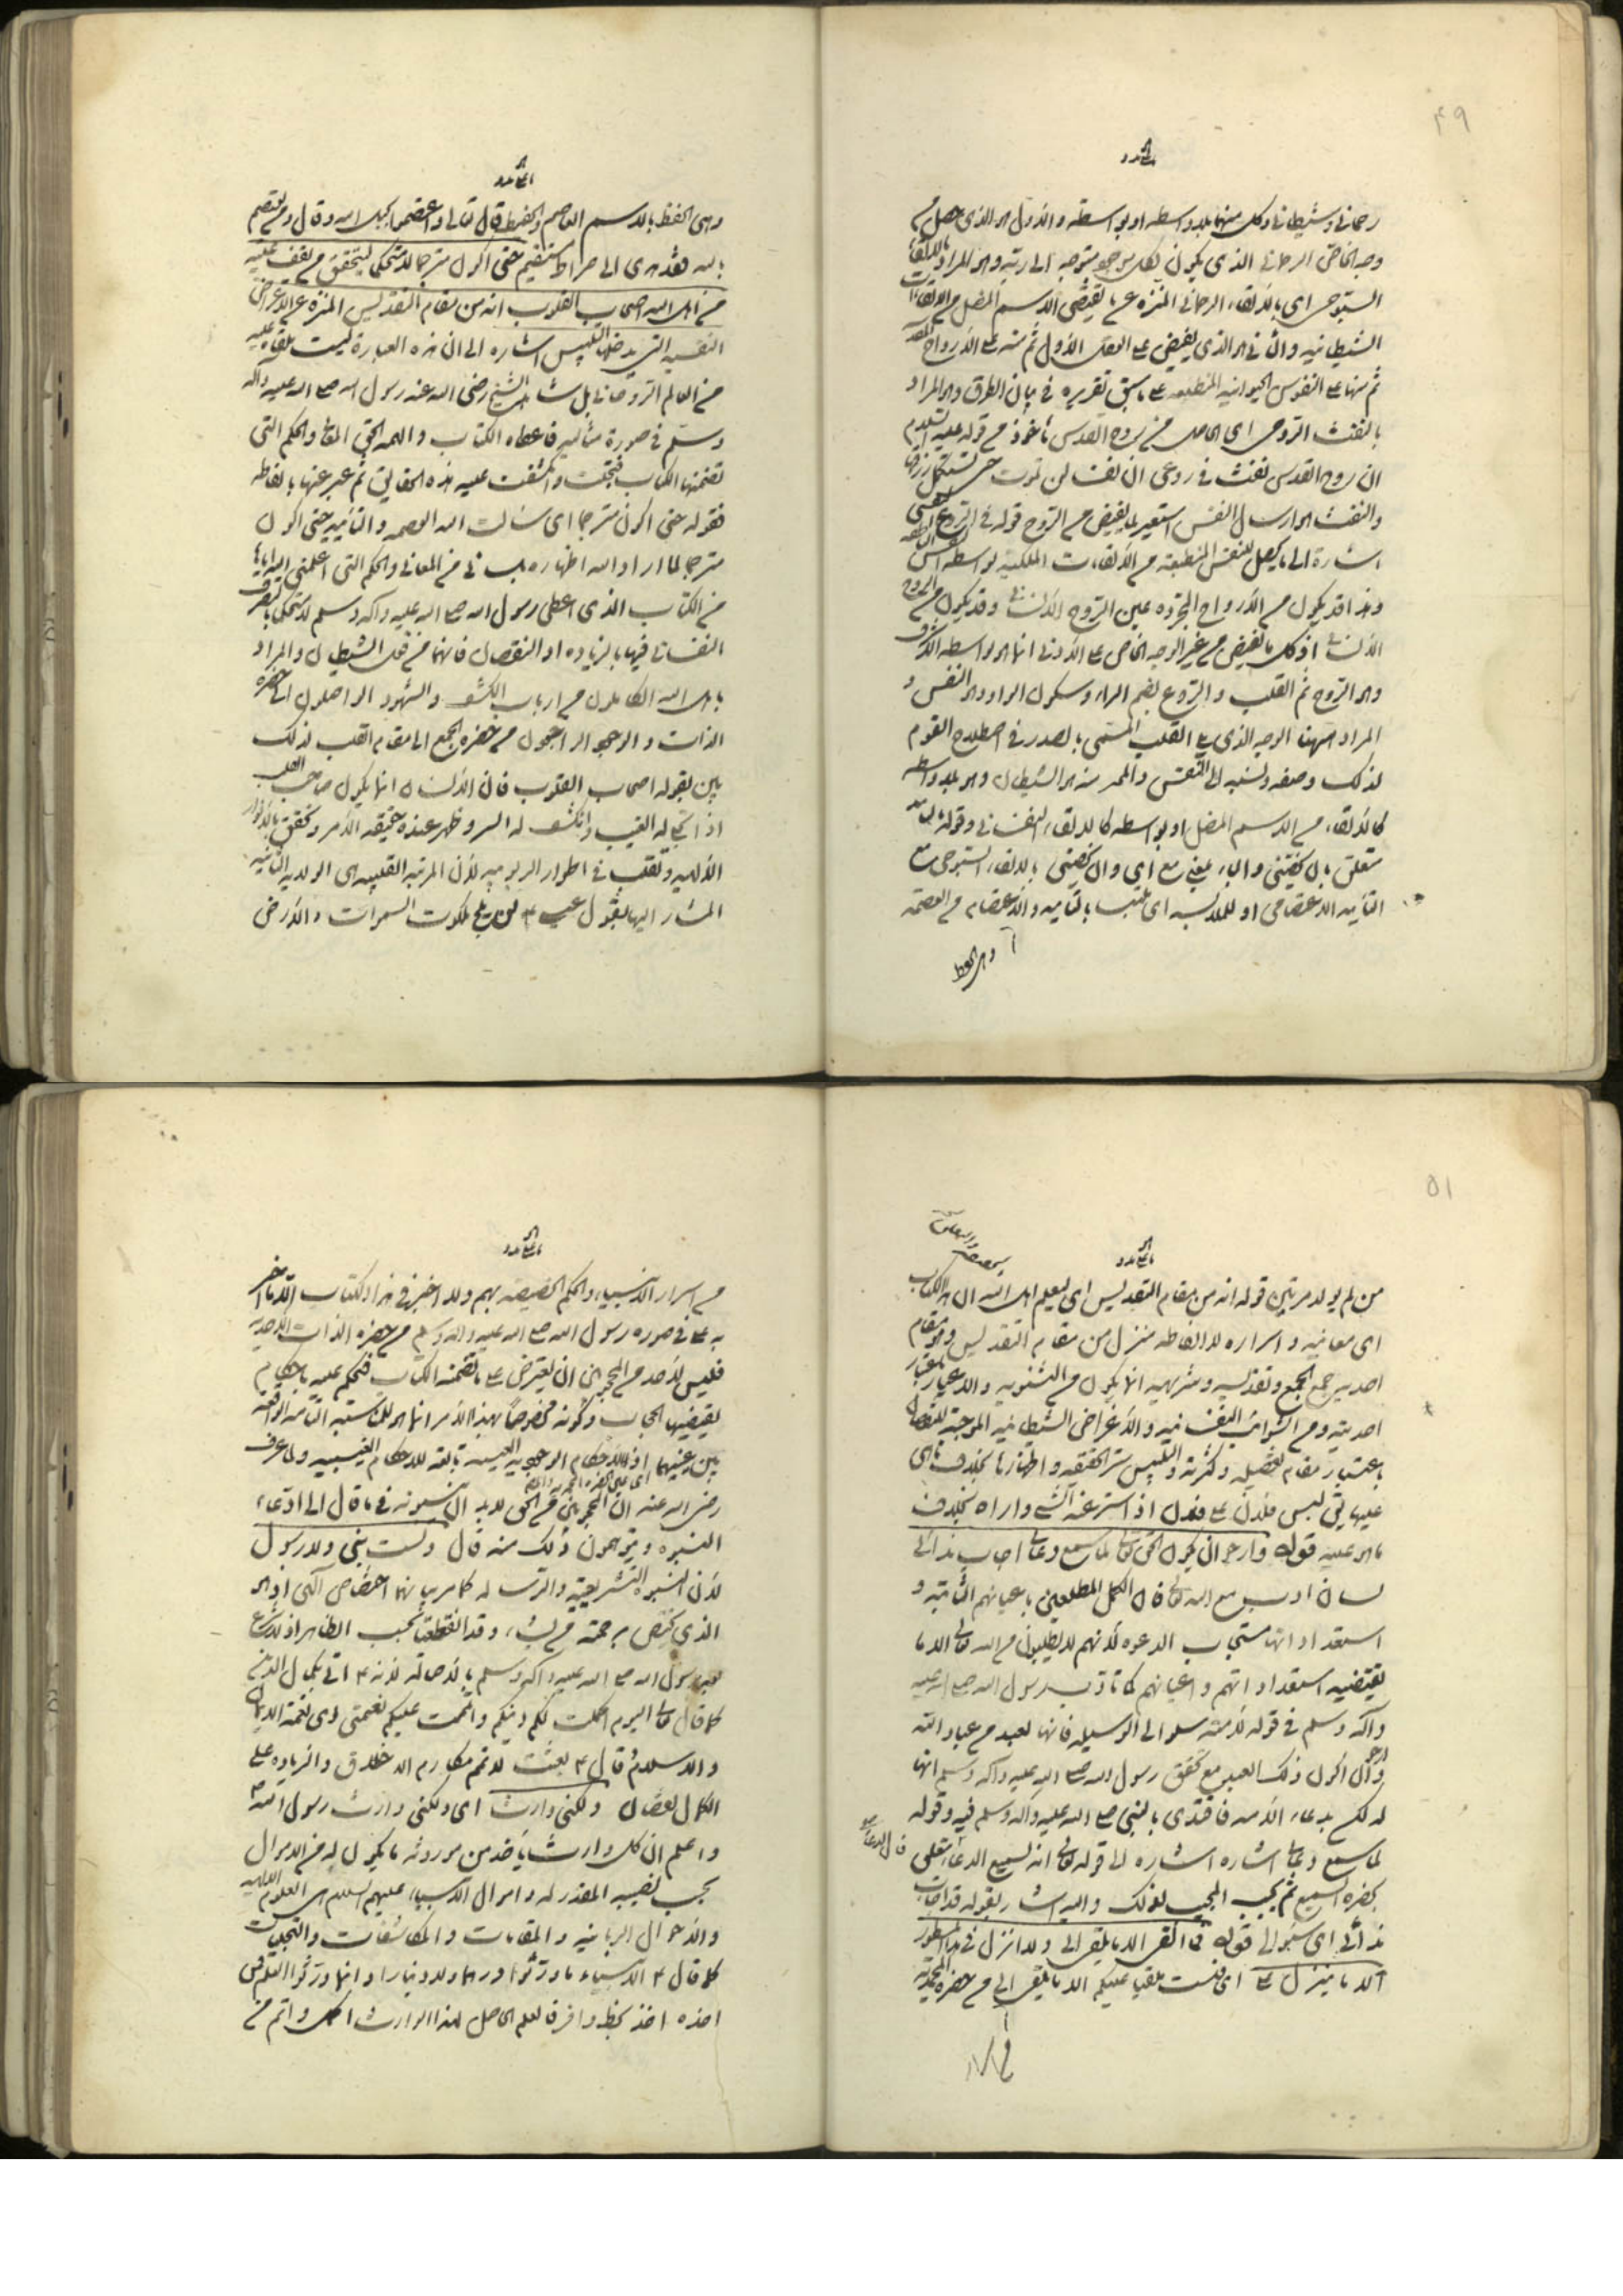 ۴۹
رحماني وشيطاني وكل منهما بلا واسطه او بواسطه والاول هو الذي حصل من
وجه الخاص الرحماني الذي يكون لكل موجود متوجه الى ربه وهو المراد بالالقاء
السبوحي اي بالالقاء الرحماني المنزه عما يقتضي الاسم المضل من الالقاءات
الشيطانيه والثاني هو الذي يفيض على العقل الاول ثم منه على الارواح القدسيه
ثم منها على النفوس الحيوانيه المنطبعه على ما سبق تقريره في بيان الطرق وهو المراد
بالنفث الروحي اي الحاصل من روح القدس مأخوذ من قوله عليه السلام
ان روح القدس نفث في روعي ان نفسا لن تموت حتى تستكمل رزقها
والنفث هو ارسال النفس استعير لما يفيض من الروح قوله في الروع النفسي
اشارة الى ما يحصل للنفس المنطبعة من الالقاءات الملكية بواسطه النفس الناطقه
وهذا قد يكون من الارواح المجرده غير الروح الانساني وقد يكون من الروح
الانساني اذ كل ما يفيض من غير الوجه الخاص على الادنى انما هو بواسطه الاشرف
وهو الروح ثم القلب والروع بضم الراء وسكون الواو وهو النفس و
المراد ههنا الوجه الذي يلي القلب المسمى بالصدر في اصطلاح القوم
لذلك وصفه ونسبه الى النفس والملهم منه هو الشيطان وهو بلا واسطه
كالالقاء من الاسم المضل او بواسطه كالالقاء النفساني وقوله بالتأييد
متعلق بان يخصني والباء بمعنى مع اي وان يخصني بالالقاء السبوحي مع
التأييد الاعتصامي او للملابسه اي ملتبسا بالتأييد والاعتصام من العصمة
وهي الحفظ
وهي الحفظ بالاسم العاصم والحفيظ قال تعالى واعتصموا بحبل الله وقال ومن يعتصم
بالله فقد هدى الى صراط مستقيم حتى اكون مترجما لا متحكما ليتحقق من يقف عليه
من اهل الله اصحاب القلوب انه من مقام التقديس المنزه عن الاغراض
النفسيه التي يدخلها التلبيس اشاره الى ان هذه العبارة ليست ملقاه عليه
من العالم الروحاني بل شاهد الشيخ رضي الله عنه رسول الله صلى الله عليه وآله
وسلم في صورة مثاليه فاعطاه الكتاب والهمه الحق المعاني والحكم التي
تضمنها الكتاب فتجلت وانكشفت عليه هذه الحقايق ثم عبر عنها بالفاظه
فقوله حتى اكون مترجما اي سالت الله العصمه والتأييد حتى اكون
مترجما لما اراد الله اظهاره بلساني من المعاني والحكم التي اعلمني الله اياها
من الكتاب الذي اعطى رسول الله صلى الله عليه وآله وسلم لا متحكما بتصرف
النفساني فيها بالزياده او النقصان فانهما من فعل الشيطان والمراد
باهل الله الكاملون من ارباب الكشف والشهود الواصلون الى حضره
الذات والوجود الراجعون من حضره الجمع الى مقام القلب لذلك
بين بقوله اصحاب القلوب فان الانسان انما يكون صاحب القلب
اذا تجلى له الغيب وانكشف له السر وظهر عنده حقيقه الامر وتحقق بالانوار
الالهيه وتقلب في اطوار الربوبيه لان المرتبه القلبيه هي الولاده الثانيه
المشار اليها بقول عيسى ع لن يلج ملكوت السموات والارض
۵۱
من لم يولد مرتين قوله انه من مقام التقديس اي ليعلم اهل الله ان هذا الكتاب
اي معانيه واسراره لا الفاظه منزل من مقام التقديس وهو مقام
احديه جمع الجمع وتقديسه وتنزيهه انما يكون من الثنويه والاغيار باعتبار
احديته ومن الشوائب النفسانيه والاغراض الشيطانيه الموجبة للنقصان
باعتبار مقام تفصيله وكثرته والتلبيس ستر الحقيقه واظهارها بخلاف ما هي
عليها يقال لبس فلان على فلان اذا ستر عنه الشيء واراه بخلاف
ما هو عليه قوله وارجو ان يكون الحق تعالى لما سمع دعائي اجاب ندائي
لسان ادب مع الله تعالى فان الكمل المطلعين باعيانهم الثابته و
استعداداتها مستجاب الدعوه لانهم لا يطلبون من الله تعالى الا ما
يقتضيه استعداداتهم واعيانهم كما تادب رسول الله صلى الله عليه
وآله وسلم في قوله لامته سلوا الى الوسيله فانها لعبد من عباد الله
وارجو ان اكون ذلك العبد مع تحقق رسول الله صلى الله عليه وآله وسلم انها
له لكم بدعاء الامه فاقتدى بالنبي صلى الله عليه وآله وسلم فيه وقوله
لما سمع دعائي اشاره الى قوله تعالى انه لسميع الدعاء
بحضره السميع ثم يجيب المجيب لذلك واليه اشار بقوله قد اجاب
ندائي اي سؤالي قوله فما القى الا ما يلقى الي ولا انزل في هذا المسطور
الا ما ينزل علي اي لست ملقيا عليكم الا ما يلقى الي من حضره المحمديه
من اسرار الانبياء والحكم الخصيصه بهم ولا اخبر في هذا الكتاب الا ما اخبر
به علي في صوره رسول الله صلى الله عليه وآله وسلم من حضره الذات الاحديه
فليس لاحد من المحجوبين ان يعترض على ما تضمنه الكتاب فيحكم عليه باحكام
يقتضيها الحجاب وكونه مخصوصا بهذا الامر انما هو للمناسبة التامه الواقعه
بين عينيهما اذ الاحكام الوجوديه العينيه تابعه للاحكام الغيبيه ولما عرف
رضي الله عنه ان المحجوبين من الحق لا بد ان ينسبونه في ما قال الى ادعاء
النبوه ويتوهمون ذلك منه قال ولست بنبي ولا رسول
لان النبوه التشريعية والرسالة كما مر بيانهما اختصاص الهي اذ هو
الذي يختص برحمته من يشاء وقد انقطعتا بحسب الظاهر اذ لا شرع
بعد رسول الله صلى الله عليه وآله وسلم بالاصاله لانه ع اتى بكمال الدين
كما قال تعالى اليوم اكملت لكم دينكم واتممت عليكم نعمتي اي نعمة الايمان
والاسلام قال ع بعثت لاتمم مكارم الاخلاق والزياده على
الكمال نقصان ولكني وارث اي ولكني وارث رسول الله
واعلم ان كل وارث ياخذ من موروثه ما يكون له من الاموال
بحسب نصيبه المقدر له واموال الانبياء عليهم السلام هي العلوم الالهيه
والاحوال الربانيه والمقامات والمكاشفات والتجليات
كما قال ع الانبياء ما ورثوا درهما ولا دينارا وانما ورثوا العلم فمن
اخذه اخذ بحظ وافر فالعلم الحاصل لهذا الوارث اكمل واتم من